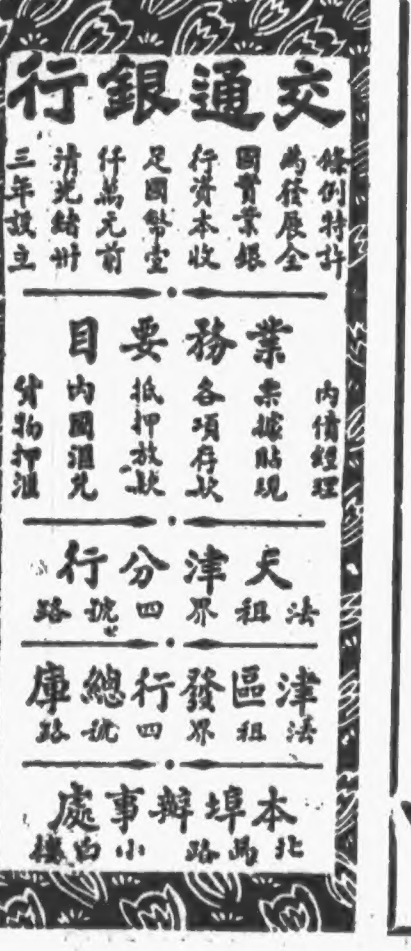 交通銀行
條例特許
為發展全
國實業銀
行資本收
足國幣壹
仟萬元前
清光緒卅
三年設立
業務要目
內債經理
票據貼現
各項存款
抵押放款
內國匯兌
貨物押匯
天津分行
法租界四號路
津區發行總庫
法租界四號路
本埠辦事處
北馬路 小白樓